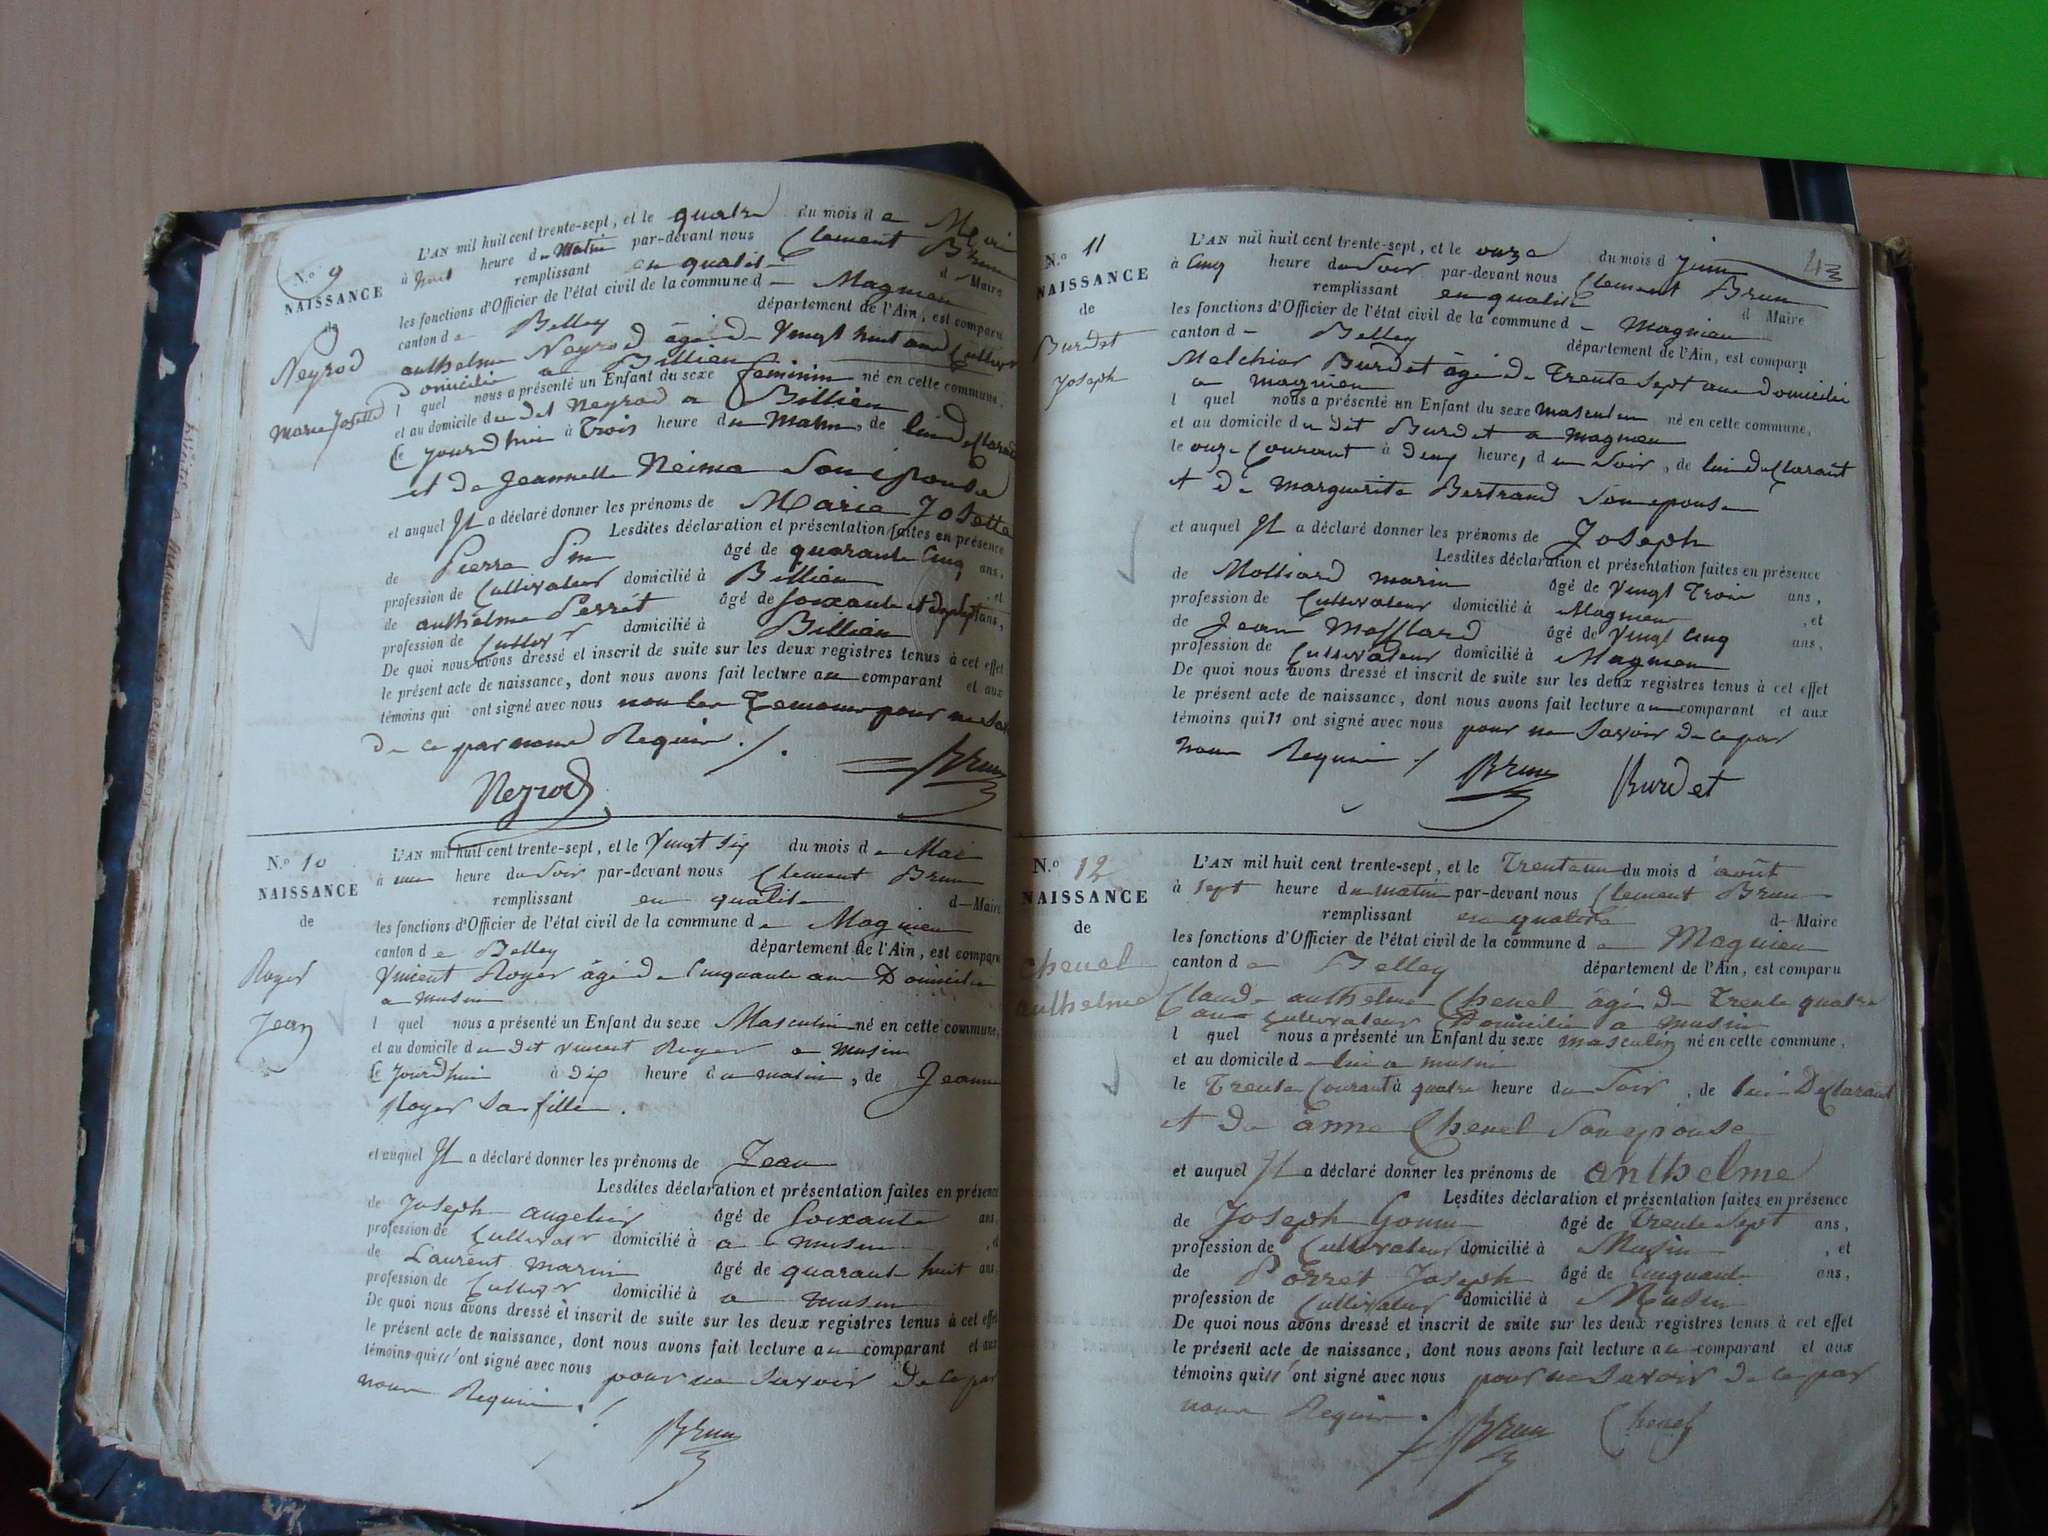 N.º 9
NAISSANCE
de
Neyrod
Marie Josette
L'AN mil huit cent trente-sept, et le quatre du mois de Mai
à huit heure du Matin par-devant nous Clement Brun
remplissant en qualité d Maire
les fonctions d'Officier de l'état civil de la commune de Magnieu
canton de Belley département de l'Ain, est comparu
anthelme Neyrod âgé de Vingt huit ans Cultivr
Domicilié a Billieu
l quel nous a présenté un Enfant du sexe feminin né en cette commune,
et au domicile du dit Neyrod a Billieu
le jourdhui à Trois heure du Matin, de lui Declarant
et de Jeannette Neima Son epouse
et auquel Il a déclaré donner les prénoms de Maria Josette
Lesdites déclaration et présentation faites en présence
de Pierre Pin âgé de quarante Cinq ans,
profession de Cultivateur domicilié à Billieu, et
de anthelme Perret âgé de soixante et dix sept ans,
profession de Cultivr domicilié à Billieu
De quoi nous avons dressé et inscrit de suite sur les deux registres tenus à cet effet
le présent acte de naissance, dont nous avons fait lecture au comparant et aux
témoins qui ont signé avec nous non les Temoins pour ne Sav
De ce par nous Requis ./.
Brun
Neyrod
N.º 10
NAISSANCE
de
Royer
Jean
L'AN mil huit cent trente-sept, et le Vingt six du mois de Mai
à une heure du Soir par-devant nous Clement Brun
remplissant en qualité d Maire
les fonctions d'Officier de l'état civil de la commune de Magnieu
canton de Belley département de l'Ain, est comparu
Vincent Royer âgé de Cinquante ans Domicilié
a musin
l quel nous a présenté un Enfant du sexe Masculin né en cette commune,
et au domicile du Dit Vincent Royer a Musin
le Jourdhui à dix heure du matin, de Jeanne
Royer Sa fille.
et auquel Il a déclaré donner les prénoms de Jean
Lesdites déclaration et présentation faites en présence
de Joseph angelier âgé de Soixante ans,
profession de Cultivatr domicilié à a musin, et
de Laurent marin âgé de quarante huit ans
profession de Cultivr domicilié à a musin
De quoi nous avons dressé et inscrit de suite sur les deux registres tenus à cet effet
le présent acte de naissance, dont nous avons fait lecture au comparant et aux
témoins qui n'ont signé avec nous pour ne Savoir De ce par
nous Requis ./
Brun
4
N.º 11
NAISSANCE
de
Burdet
Joseph
L'AN mil huit cent trente-sept, et le onze du mois d Juin
à Cinq heure du Soir par-devant nous Clement Brun
remplissant en qualité d Maire
les fonctions d'Officier de l'état civil de la commune d Magnieu
canton d Belley département de l'Ain, est comparu
Melchior Burdet âgé de Trente Sept ans domicilié
a magnieu
l quel nous a présenté un Enfant du sexe masculin né en cette commune,
et au domicile du dit Burdet a magnieu
le onze Courant à deux heure, du Soir, de lui declarant
et de Marguerite Bertrand Son epouse
et auquel Il a déclaré donner les prénoms de Joseph
Lesdites déclaration et présentation faites en présence
de Molliard marin âgé de Vingt Trois ans,
profession de Cultivateur domicilié à Magnieu, et
de Jean âgé de Vingt Cinq ans,
profession de Cultivateur domicilié à Magnieu
De quoi nous avons dressé et inscrit de suite sur les deux registres tenus à cet effet
le présent acte de naissance, dont nous avons fait lecture au comparant et aux
témoins qui n ont signé avec nous pour ne Savoir de ce par
nous Requis ./
Brun Burdet
N.º 12
NAISSANCE
de
Chenel
anthelme
L'AN mil huit cent trente-sept, et le Trente un du mois d'août
à Sept heure du matin par-devant nous Clement Brun
remplissant en qualité d Maire
les fonctions d'Officier de l'état civil de la commune de Magnieu
canton de Belley département de l'Ain, est comparu
Claude anthelme Chenel âgé de Trente quatre
ans Cultivateur Domicilié a musin
l quel nous a présenté un Enfant du sexe masculin né en cette commune,
et au domicile de lui a musin
le Trente Courant à quatre heure du Soir, de lui Declarant
et de anne Chenel Son epouse
et auquel Il a déclaré donner les prénoms de anthelme
Lesdites déclaration et présentation faites en présence
de Joseph âgé de Trente Sept ans,
profession de Cultivateur domicilié à Musin, et
de Perret Joseph âgé de Cinquante ans,
profession de Cultivateur domicilié à Musin
De quoi nous avons dressé et inscrit de suite sur les deux registres tenus à cet effet
le présent acte de naissance, dont nous avons fait lecture au comparant et aux
témoins qui n'ont signé avec nous pour ne Savoir De ce par
nous Requis ./
Brun Chenel